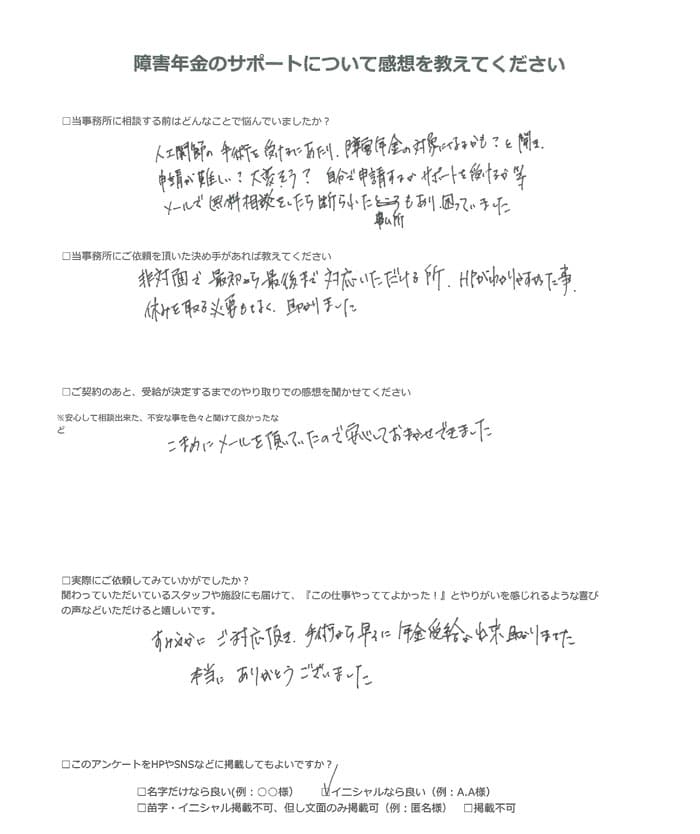 障害年金のサポートについて感想を教えてください
□当事務所に相談する前はどんなことで悩んでいましたか？
人工関節の手術を受けるにあたり、障害年金の対象になるかも？と聞き、
申請が難しい？大変そう？自分で申請するかサポートを受けるか等
メールで無料相談をしたら断られたところもあり、困っていました
事ム所
□当事務所にご依頼を頂いた決め手があれば教えてください
非対面で最初から最後まで対応いただける所、HPがわかりやすかった事、
休みを取る必要もなく、助かりました
□ご契約のあと、受給が決定するまでのやり取りでの感想を聞かせてください
※安心して相談出来た、不安な事を色々と聞けて良かったな
ど
こまめにメールを頂いていたので安心しておまかせできました
□実際にご依頼してみていかがでしたか？
関わっていただいているスタッフや施設にも届けて、『この仕事やっててよかった！』とやりがいを感じれるような喜び
の声などいただけると嬉しいです。
すみやかにご対応頂き、手術から早くに年金受給が出来助かりました
本当にありがとうございました
□このアンケートをHPやSNSなどに掲載してもよいですか？
□名字だけなら良い(例：○○様) ☑イニシャルなら良い（例：A.A様）
□苗字・イニシャル掲載不可、但し文面のみ掲載可（例：匿名様） □掲載不可